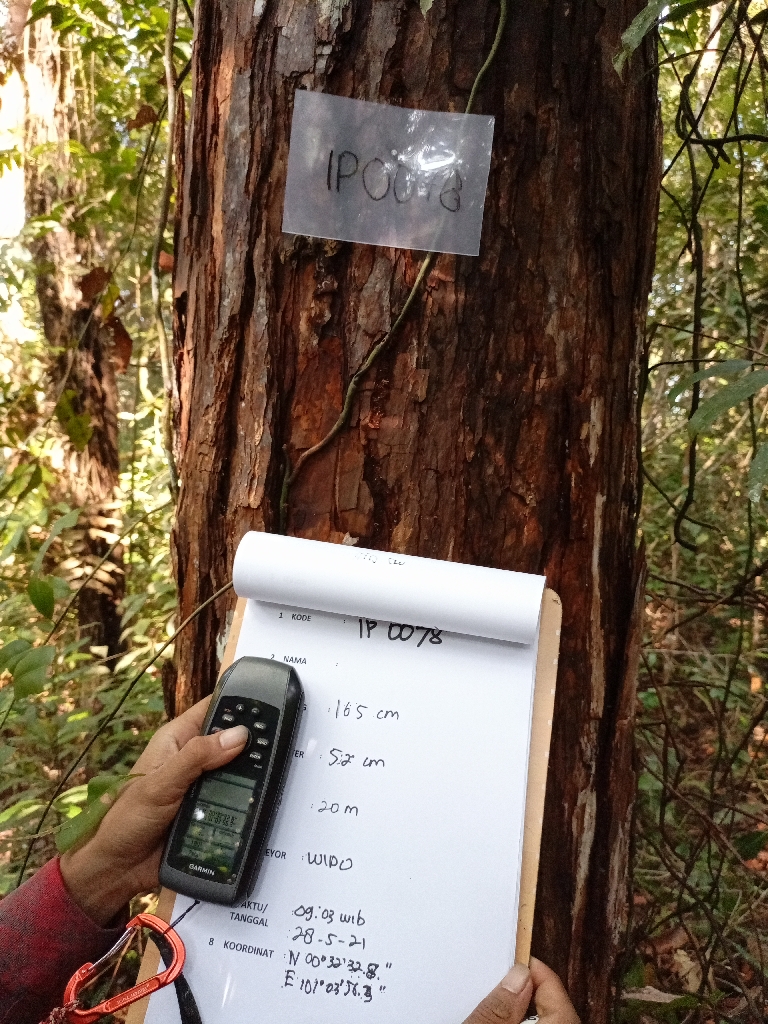 IP0078
1 KODE : IP 0078
2 NAMA :
: 165 cm
: 52 cm
: 20 m
EYOR : WIDO
AKTU/ : 09:03 wib
TANGGAL : 28-5-21
8 KOORDINAT : N 00°32'32.8"
E 101°03'56.3"
GARMIN